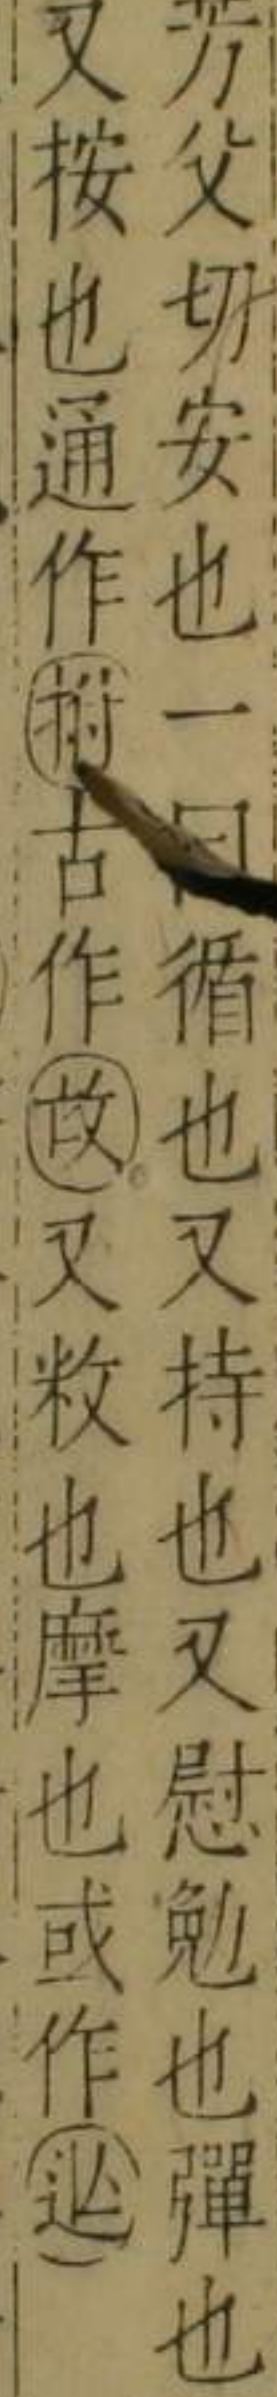 芳父切安也一曰循也又持也又慰勉也彈也
又按也通作拊古作㪇又敉也摩也或作